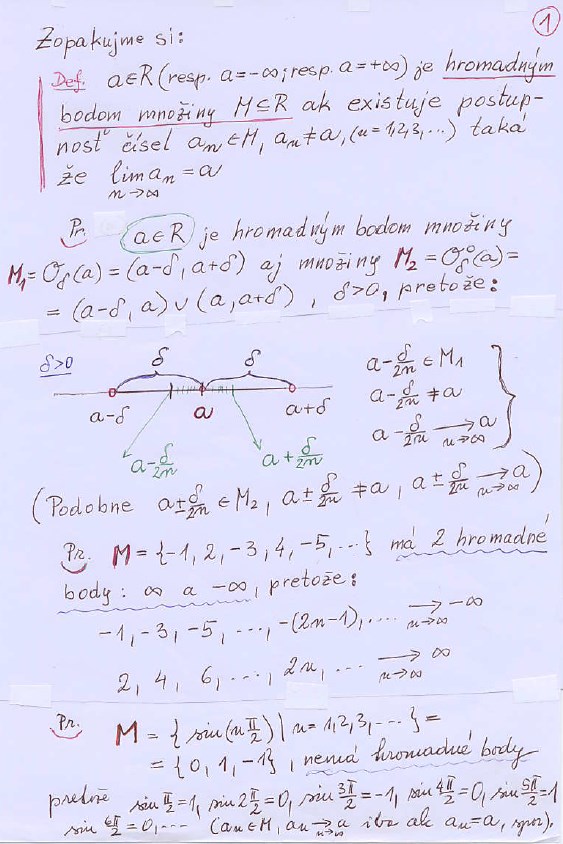 1
Zopakujme si:
Def. a∈R (resp. a=-∞; resp. a=+∞) je hromadným
bodom množiny M⊆R ak existuje postup-
nosť čísel aₙ∈M, aₙ≠a, (n=1,2,3,...) taká
že lim aₙ = a
n→∞
Pr. a∈R je hromadným bodom množiny
M₁ = O_δ(a) = (a-δ, a+δ) aj množiny M₂ = O°_δ(a) =
= (a-δ, a) ∪ (a, a+δ), δ>0, pretože:
δ>0 δ δ
a-δ a a+δ
a-δ/2n a+δ/2n
a-δ/2n ∈ M₁
a-δ/2n ≠ a
a-δ/2n →(n→∞) a
(Podobne a±δ/2n ∈ M₂, a±δ/2n ≠ a, a±δ/2n →(n→∞) a)
Pr. M = {-1, 2, -3, 4, -5, ...} má 2 hromadné
body: ∞ a -∞, pretože:
-1, -3, -5, ..., -(2n-1), ... →(n→∞) -∞
2, 4, 6, ..., 2n, ... →(n→∞) ∞
Pr. M = {sin(n π/2) | n=1,2,3,...} =
= {0, 1, -1}, nemá hromadné body
pretože sin π/2=1, sin 2π/2=0, sin 3π/2=-1, sin 4π/2=0, sin 5π/2=1
sin 6π/2=0,... (aₙ∈M, aₙ →(n→∞) a iba ak aₙ=a, spor).